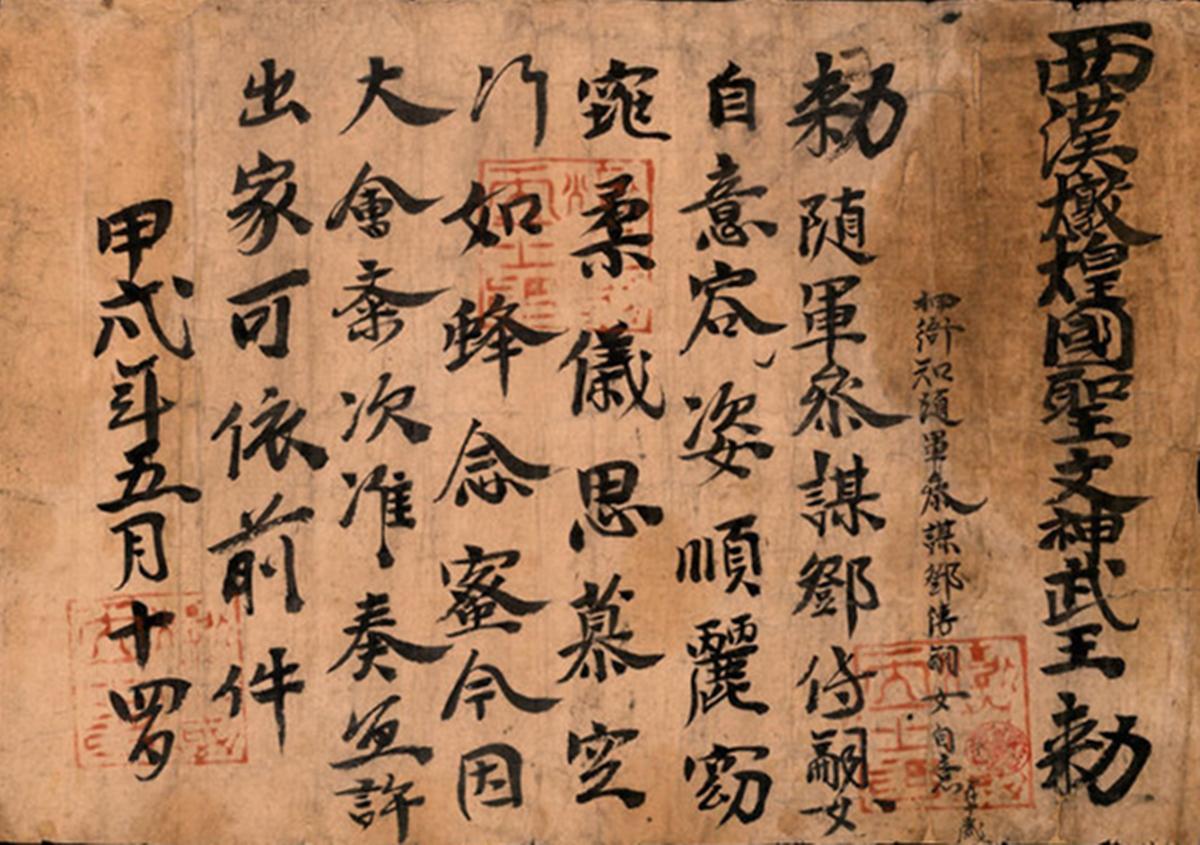 西漢燉煌國聖文神武王勅
押衙知随軍叅謀鄧傳嗣女自意年十 歲
勅随軍叅謀鄧傳嗣女
自意容姿順麗窈
窕柔儀思慕空
門如蜂念蜜今因
大會齋次准奏宜許
出家可依前件
甲戌年五月十四日